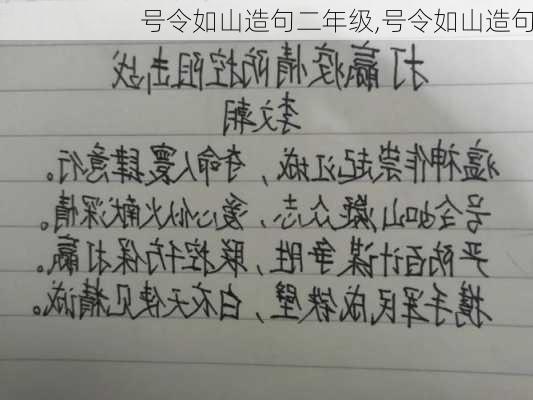 号令如山造句二年级,号令如山造句
打赢疫情防控阻击战
李文朝
瘟神作祟起江城、夺命人寰肆意行。
号令如山凝众志、爱心似火献深情。
严防百计谋争胜、联控千方保打赢。
携手军民成铁壁、白衣天使见精诚。